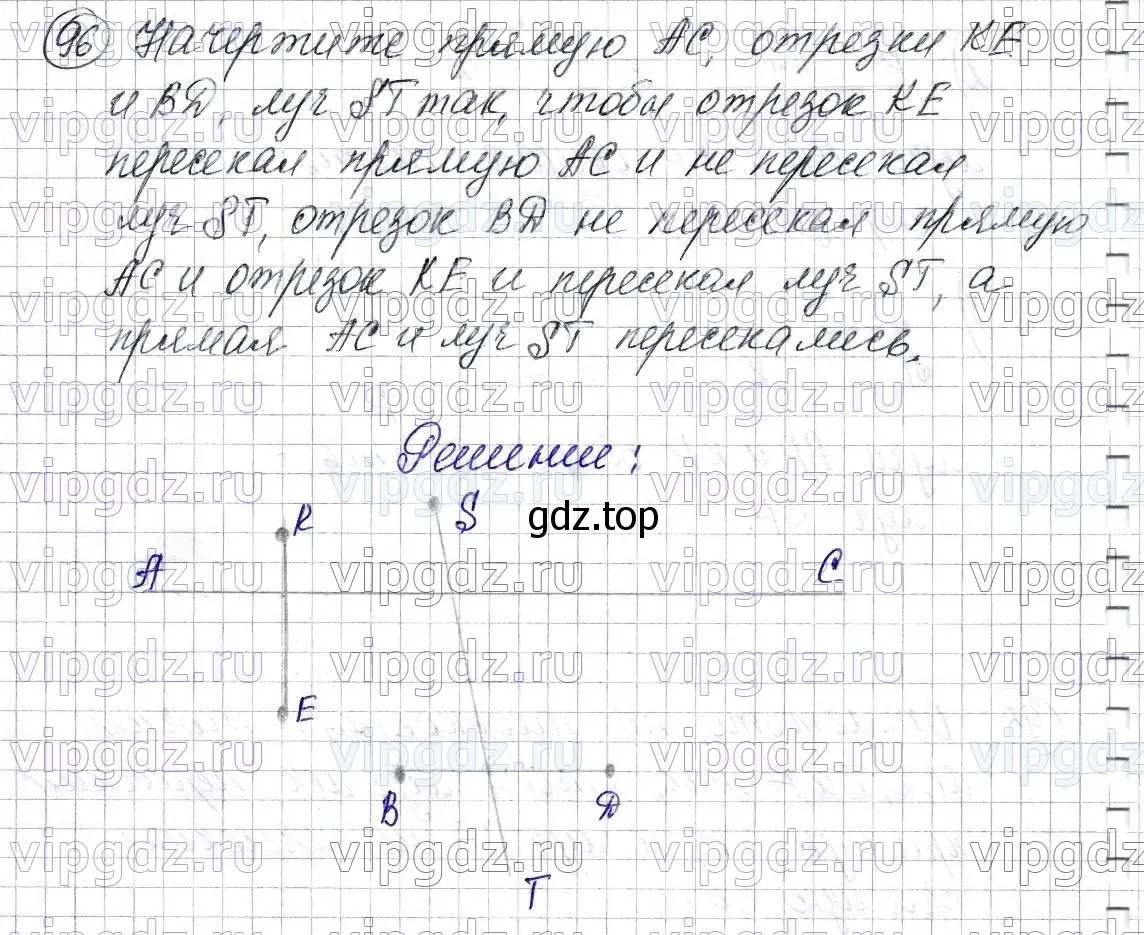 96 Начертите прямую AC, отрезки KE
и ВД, луч ST так, чтобы отрезок KE
пересекал прямую AC и не пересекал
луч ST, отрезок ВД не пересекал прямую
AC и отрезок KE и пересекал луч ST, а
прямая AC и луч ST пересекались.
vipgdz.ru vipgdz.ru vipgdz.ru vipgdz.ru
Решение:
K
S
gdz.top
A
C
E
B
Д
T